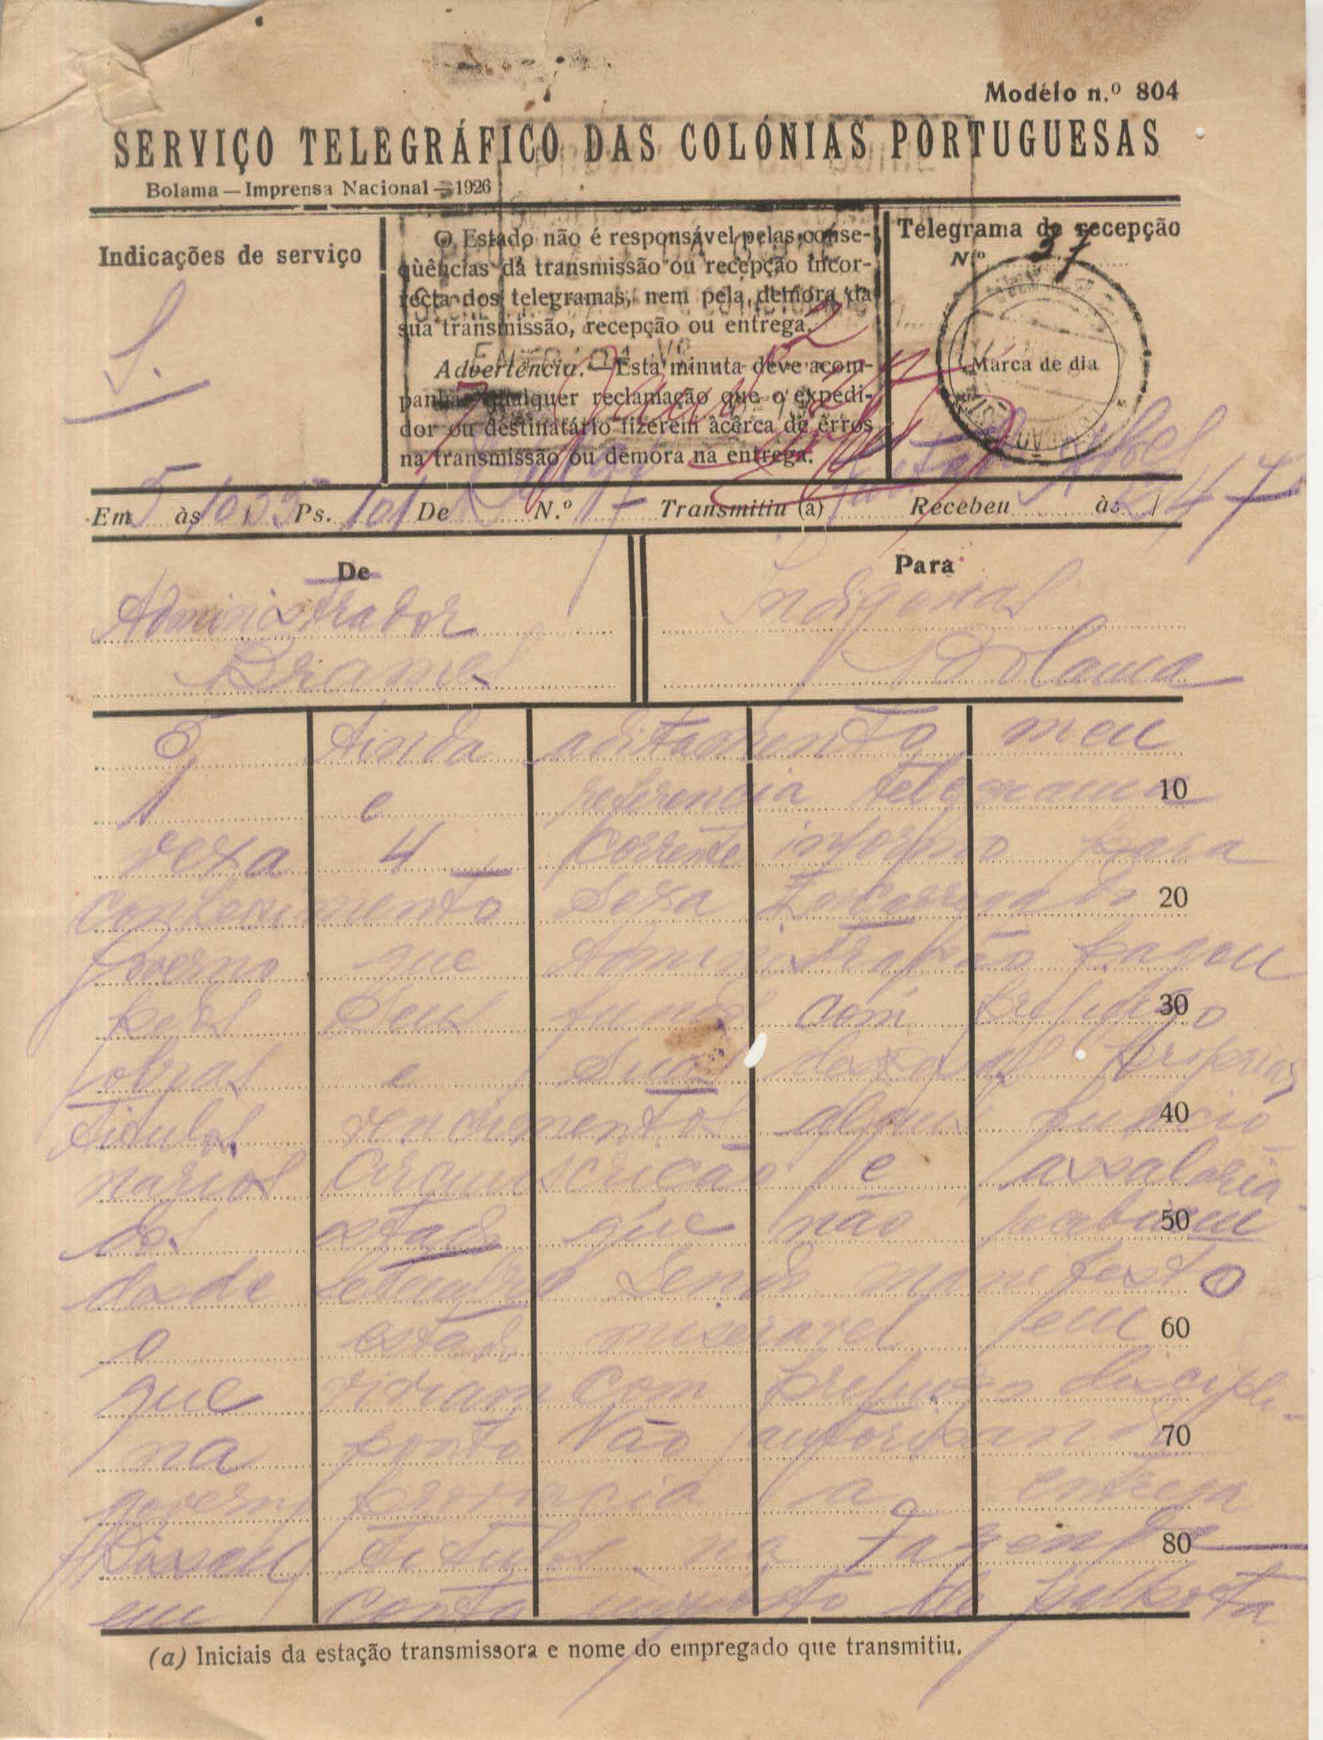 Modélo n.º 804
SERVIÇO TELEGRÁFICO DAS COLÓNIAS PORTUGUESAS
Bolama — Imprensa Nacional — 1926
Indicações de serviço
S.
O Estado não é responsável pelas conse-
qüências da transmissão ou recepção incor-
recta dos telegramas, nem pela demora da
sua transmissão, recepção ou entrega.
Advertência. — Esta minuta deve acom-
panhar qualquer reclamação que o expedi-
dor ou destinatário fizerem àcêrca de erros
na transmissão ou demora na entrega.
Telegrama de recepção
N.º 37
Marca de dia
Em 5 às 1035 Ps. 101 De N.º Transmitiu (a) Recebeu às
De
Administrador
Brames
Para
Indigenas
Bolama
Ainda aditamento meu
e referencia telegrama 10
vexa 4 corrente informo para
conhecimento Sexa Encarregado 20
Governo que Administração pagou
pelos seus fundos com prejuizo 30
obras e suas despesas proprias
titulos vencimentos alguns funcio 40
narios circunscricão e assalaria
dos estado que não recebiam 50
desde setembro sendo manifesto
o estado miseravel em 60
que viviam com prejuizo discipli-
na ponto Não autorizando 70
governo provincia a entrega
Bissau titulos na fazenda 80
em conta imposto de palhota
(a) Iniciais da estação transmissora e nome do empregado que transmitiu.